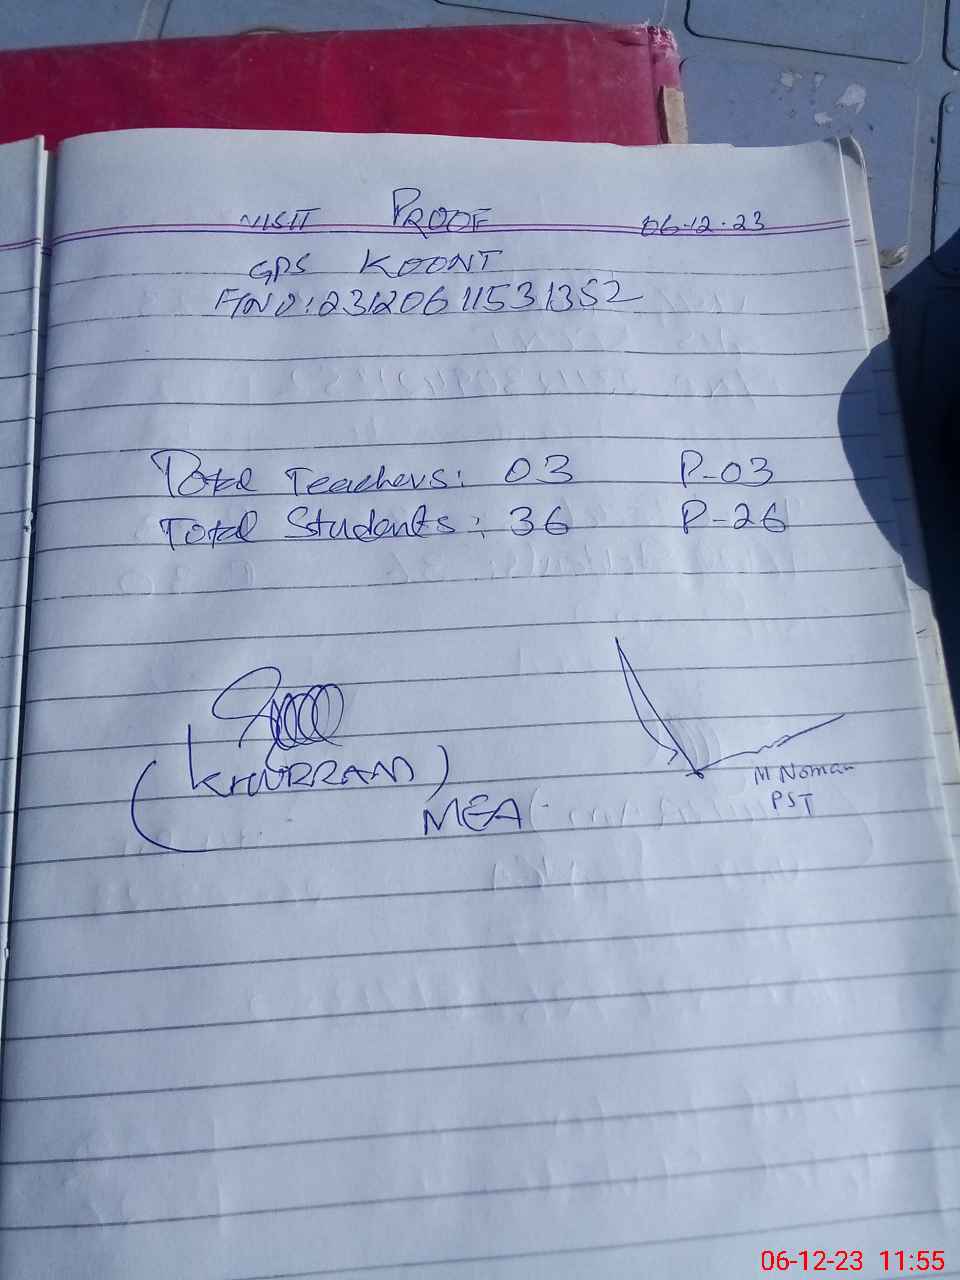 VISIT PROOF 06-12-23
GPS KOONT
F/NO: 231206 11531352
Total Teachers: 03 P-03
Total Students: 36 P-26
(KHURRAM)
MEA
M Noman
PST
06-12-23 11:55